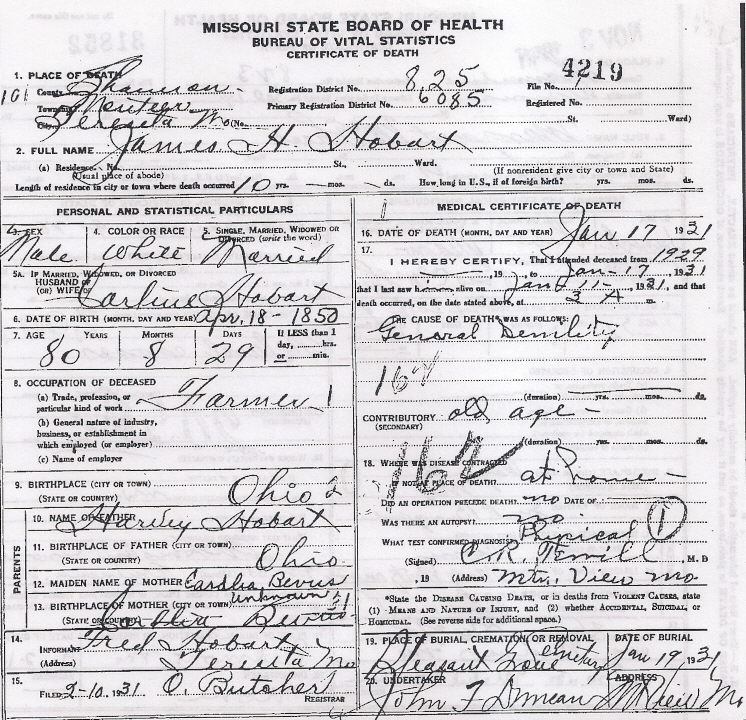 MISSOURI STATE BOARD OF HEALTH
BUREAU OF VITAL STATISTICS
CERTIFICATE OF DEATH
1. PLACE OF DEATH
101 County Shannon Registration District No. 825 File No. 4219
Township Montier Primary Registration District No. 6085 Registered No.
City Teresita Mo (No. St. Ward)
2. FULL NAME James H. Hobart
(a) Residence. No. St., Ward.
(Usual place of abode) (If nonresident give city or town and State)
Length of residence in city or town where death occurred 10 yrs. — mos. — ds. How long in U.S., if of foreign birth? yrs. mos. ds.
PERSONAL AND STATISTICAL PARTICULARS
3. SEX 4. COLOR OR RACE 5. SINGLE, MARRIED, WIDOWED OR DIVORCED (write the word)
Male White Married
5A. IF MARRIED, WIDOWED, OR DIVORCED
HUSBAND OF
(OR) WIFE OF Carline Hobart
6. DATE OF BIRTH (MONTH, DAY AND YEAR) Apr. 18 - 1850
7. AGE YEARS MONTHS DAYS If LESS than 1 day, hrs. or min.
80 8 29
8. OCCUPATION OF DECEASED
(a) Trade, profession, or particular kind of work Farmer 1
(b) General nature of industry, business, or establishment in which employed (or employer)
(c) Name of employer
9. BIRTHPLACE (CITY OR TOWN)
(STATE OR COUNTRY) Ohio 2
PARENTS
10. NAME OF FATHER Harvey Hobart
11. BIRTHPLACE OF FATHER (CITY OR TOWN)
(STATE OR COUNTRY) Ohio
12. MAIDEN NAME OF MOTHER
13. BIRTHPLACE OF MOTHER (CITY OR TOWN) Unknown
(STATE OR COUNTRY)
14. INFORMANT Fred Hobart
(Address) Teresita Mo
15. FILED 2-10 1931 O. Butcher
REGISTRAR
MEDICAL CERTIFICATE OF DEATH
16. DATE OF DEATH (MONTH, DAY AND YEAR) Jan 17 1931
17. I HEREBY CERTIFY, That I attended deceased from 1929
, 19 , to Jan - 17, 1931
that I last saw h alive on Jan 11 - 1931, and that
death occurred, on the date stated above, at 3 A m.
THE CAUSE OF DEATH* WAS AS FOLLOWS:
General Demility
162
(duration) yrs. mos. ds.
CONTRIBUTORY old age -
(SECONDARY)
(duration) yrs. mos. ds.
162
18. WHERE WAS DISEASE CONTRACTED
IF NOT AT PLACE OF DEATH? at home -
DID AN OPERATION PRECEDE DEATH? no DATE OF
WAS THERE AN AUTOPSY? no
WHAT TEST CONFIRMED DIAGNOSIS? Physical 1
(Signed) , M. D.
, 19 (Address) Mtn. View Mo
*State the DISEASE CAUSING DEATH, or in deaths from VIOLENT CAUSES, state
(1) MEANS AND NATURE OF INJURY, and (2) whether ACCIDENTAL, SUICIDAL, or
HOMICIDAL. (See reverse side for additional space.)
19. PLACE OF BURIAL CREMATION, OR REMOVAL DATE OF BURIAL
Pleasant Grove Cemetery Jan 19, 1931
20. UNDERTAKER ADDRESS
John F Duncan Mt View Mo.